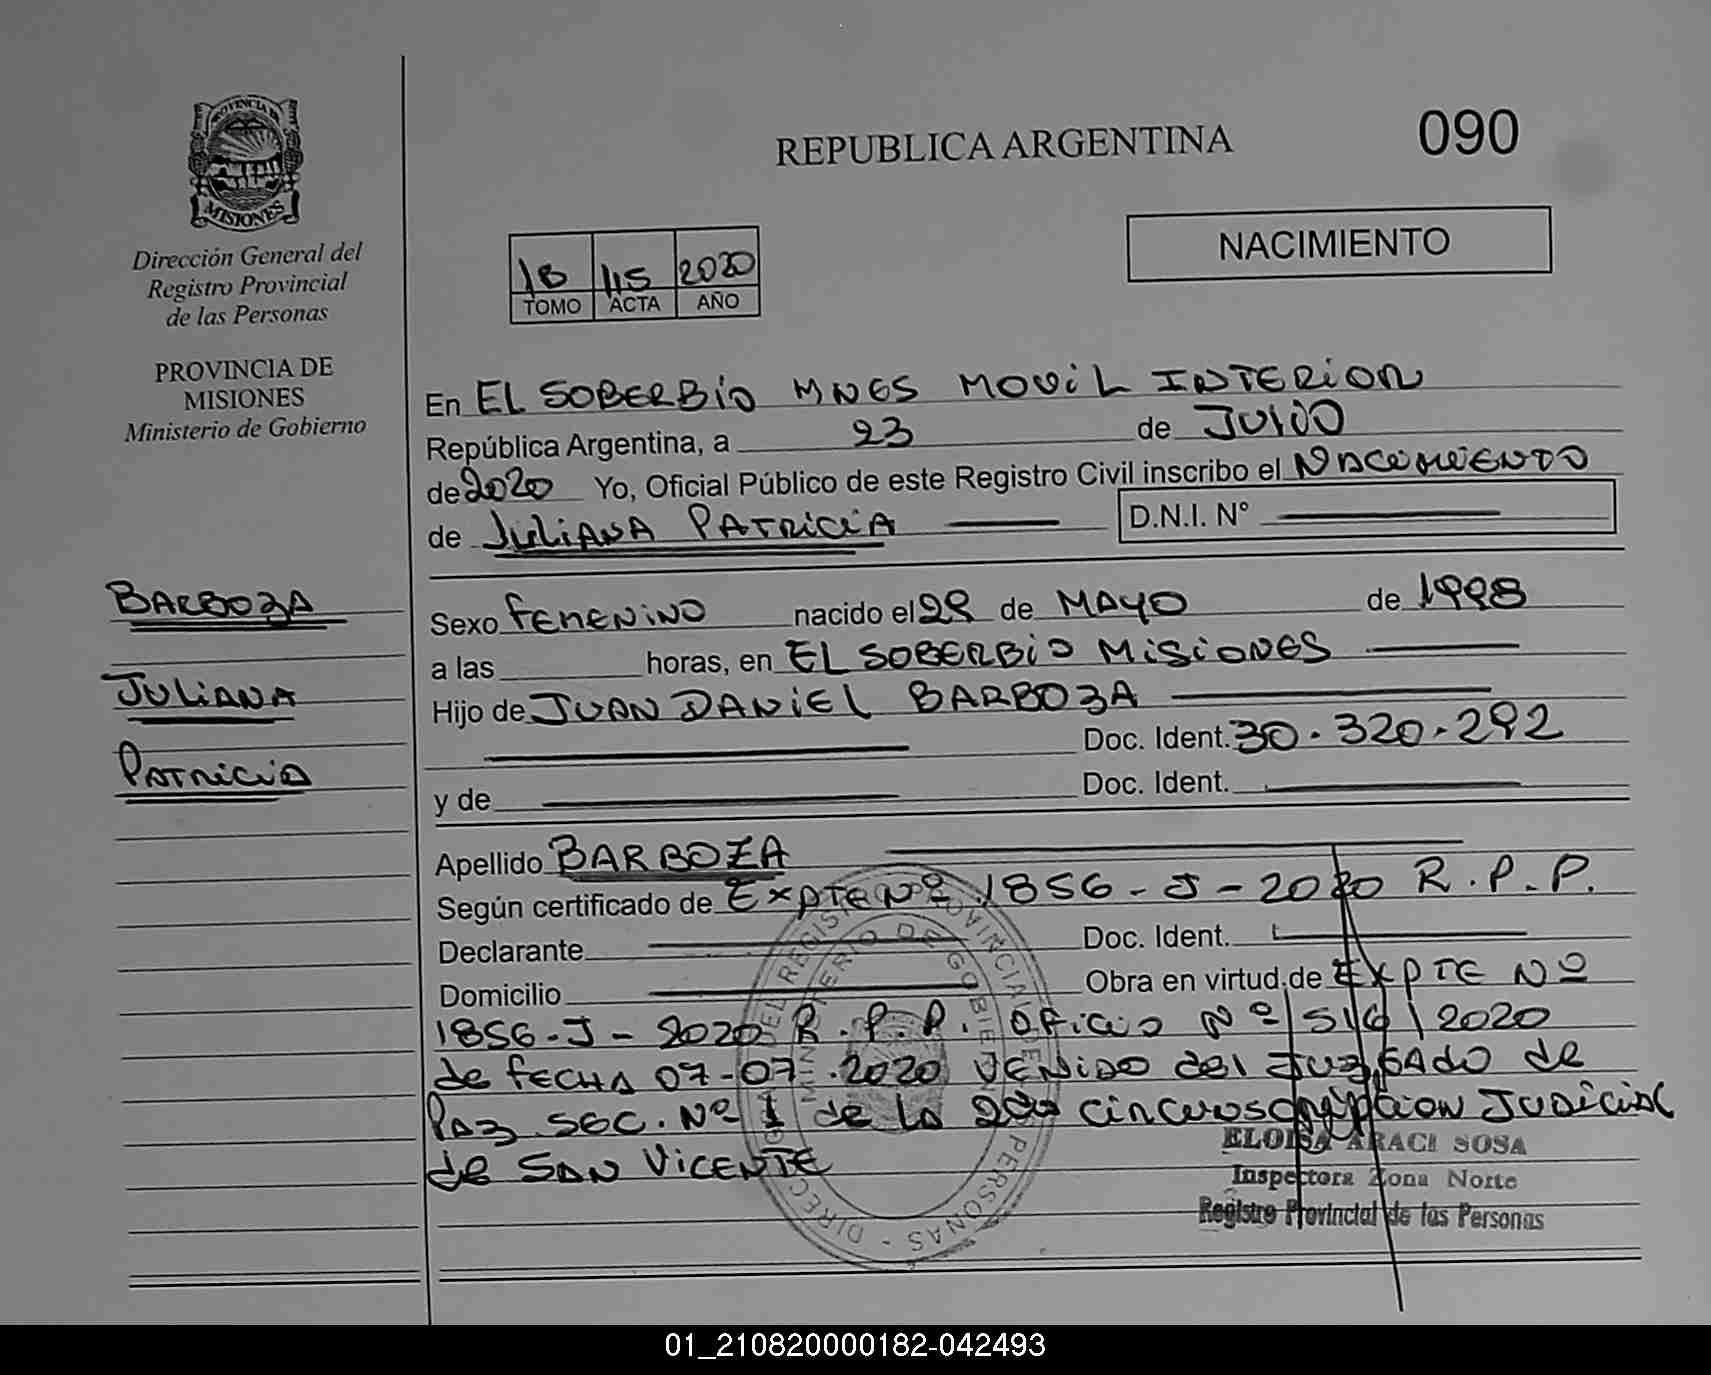 PROVINCIA DE
MISIONES
Dirección General del
Registro Provincial
de las Personas
PROVINCIA DE
MISIONES
Ministerio de Gobierno
BARBOZA
JULIANA
PATRICIA
REPUBLICA ARGENTINA
090
NACIMIENTO
1B 115 2020
TOMO ACTA AÑO
En EL SOBERBIO MNES MOVIL INTERIOR
República Argentina, a 23 de JULIO
de 2020 Yo, Oficial Público de este Registro Civil inscribo el NACIMIENTO
de JULIANA PATRICIA D.N.I. N°
Sexo FEMENINO nacido el 29 de MAYO de 1998
a las horas, en EL SOBERBIO MISIONES
Hijo de JUAN DANIEL BARBOZA
Doc. Ident. 30.320.292
y de Doc. Ident.
Apellido BARBOZA
Según certificado de EXPTE Nº 1856-J-2020 R.P.P.
Declarante Doc. Ident.
Domicilio Obra en virtud de EXPTE Nº
1856-J-2020 R.P.P. OFICIO Nº 2020
de FECHA 07-07-2020 VENIDO del JUZGADO de
PAZ SEC. Nº 1 de LA 2da CIRCUNSCRIPCION JUDICIAL
de SAN VICENTE
DIRECC DEL REGIS PROVINCIAL DE PERSONAS
MINISTERIO DE GOBIERNO
ELOISA ARACI SOSA
Inspectora Zona Norte
Registro Provincial de las Personas
01_210820000182-042493